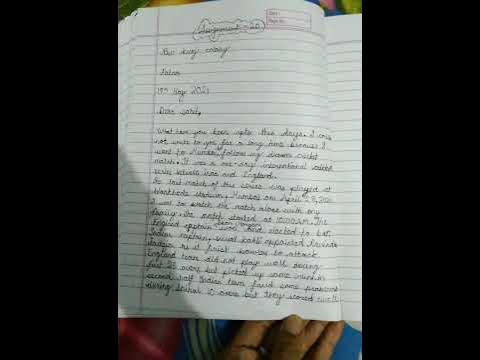 Assignment - 20
Date :
Page No :
Patna
May 2021
Dear
What have you been upto this days. I could
not write to you for a long time because I
went to Mumbai, follow my dream cricket
match. It was a one-day international cricket
series between India and England.
last match of this series was played at
Wankhede stadium, Mumbai on April 28,
I was to watch the match alone with my
family. The match started at 10:00 a.m. The
England captain won and elected to bat.
Indian captain, virat kohli appointed
Jadeja as a first bowler to attack.
England team did not play well during
first 20 overs but picked up some in
second half. Indian team faced some problems
during initial overs but they scored well